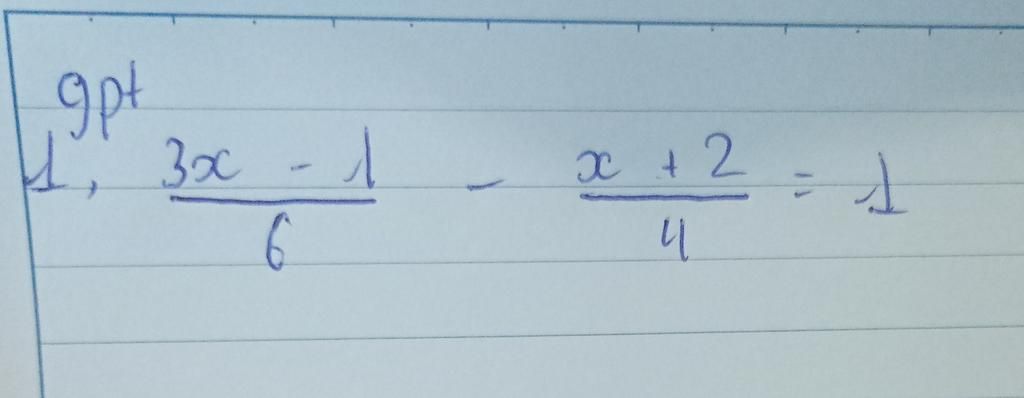 gpt
1, (3x - 1)/6 - (x + 2)/4 = 1